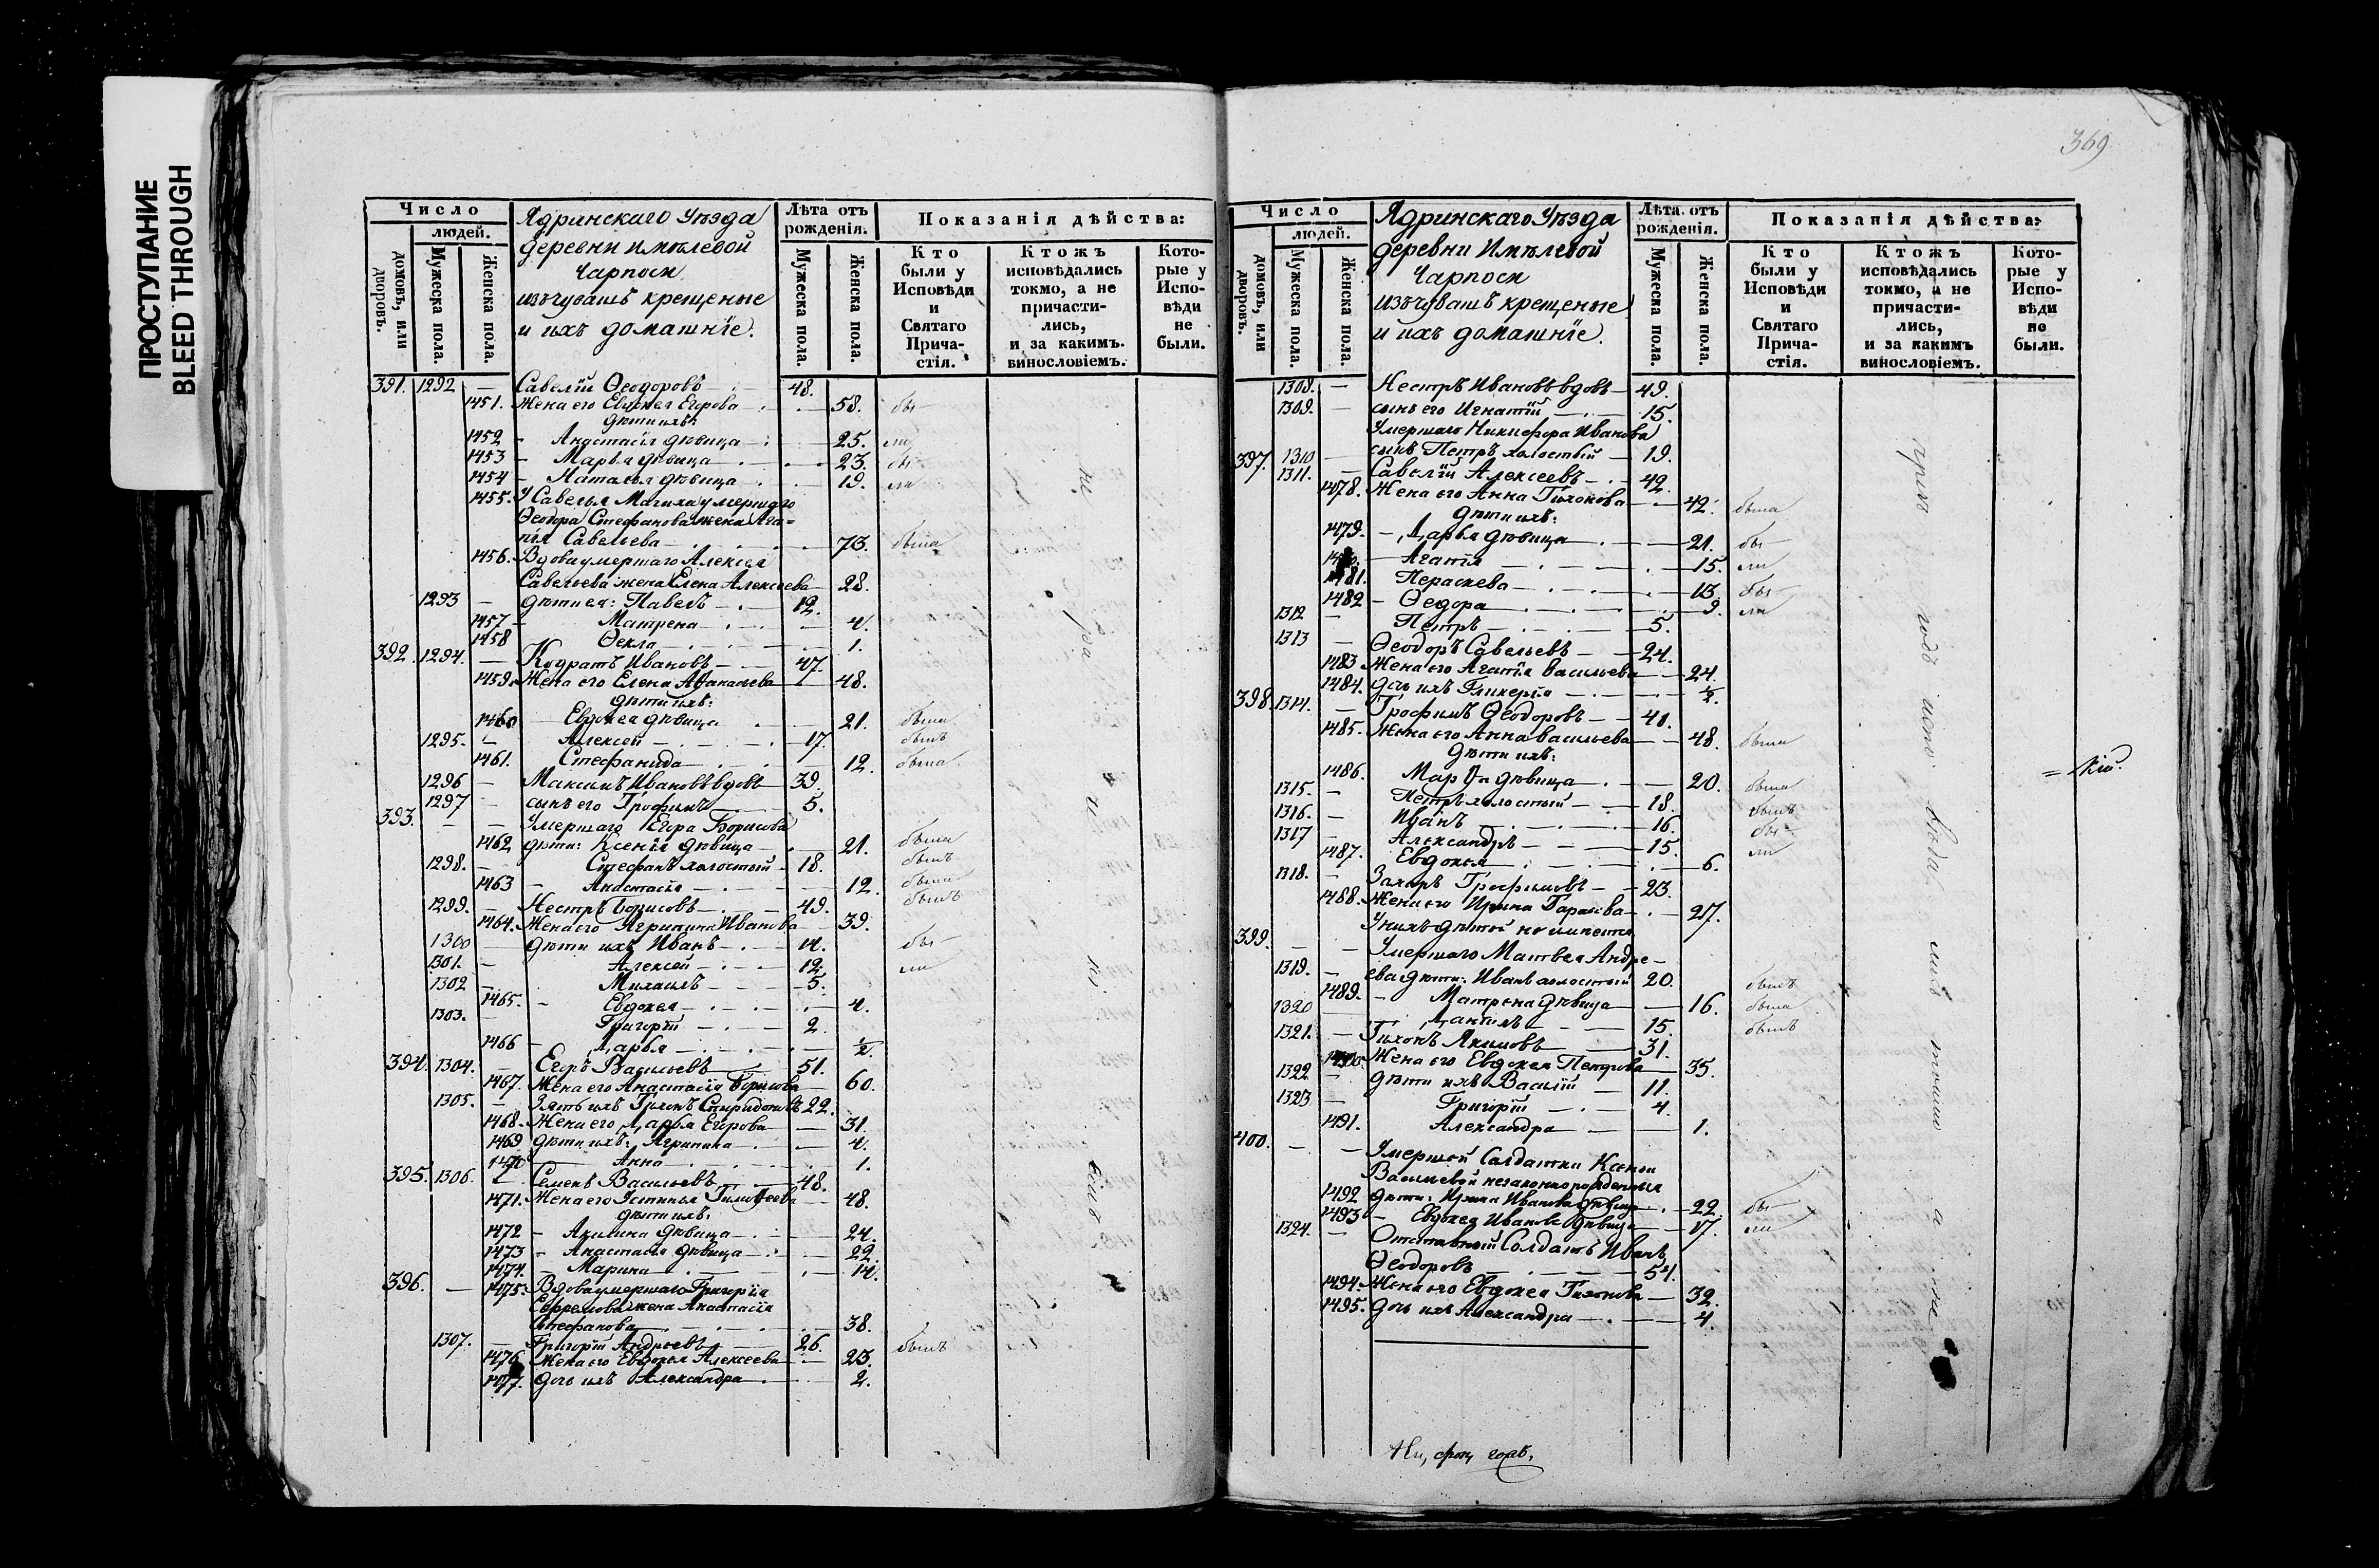 ПРОСТУПАНИЕ
BLEED THROUGH
Число
людей.
домовъ, или дворовъ.
Мужеска пола.
Женска пола.
Ядринскаго Уѣзда
деревни Имѣлевой
Чарпоси
изъ чувашъ крещеные
и ихъ домашнie.
Лѣта отъ рожденія.
Мужеска пола.
Женска пола.
Показанія дѣйства:
Кто были у Исповѣди и Святаго Прича-стія.
Ктожъ исповѣдались токмо, а не причасти-лись, и за какимъ. винословіемъ.
Кото-рые у Испо-вѣди не были.
391. 1292 — Савелій Ѳеодоровъ — 48.
1451. Жена его Евдокея Егорова — 58. бы
дѣти ихъ:
1452 — Анастасія дѣвица — 25. ли
1453 — Марья дѣвица — 23. бы
1454 — Наталья дѣвица — 19. ли
1455. У Савелья Мачиха умершаго
Ѳеодора Стефанова жена Ага=
пія Савельева — 73. была
1456. Вдова умершаго Алексея
Савельева жена Елена Алексеева 28.
1293 — дѣти ея: Павелъ — 12.
1457 — Матрена — 4.
1458 Ѳекла — 1.
392. 1294. — Кодратъ Ивановъ — 47
1459. Жена его Елена Аѳанасьева 48.
дѣти ихъ:
1460 Евдокея дѣвица — 21. была
1295. — Алексей — 17. былъ
1461. Стефанида — 12. была
1296 — Максимъ Ивановъ вдовъ 39.
1297 — сынъ его Трофимъ — 5.
393. — — Умершаго Егора Борисова
1462 дѣти: Ксенія дѣвица — 21. была
1298. — Стефанъ холостый 18. былъ
1463 — Анастасія — 12. была
1299. — Нестръ Борисовъ — 49. былъ
1464. Жена его Агрипина Иванова 39.
1300 — дѣти ихъ Иванъ — 14. бы
1301. — Алексей — 12. ли
1302 — Михаилъ — 5.
1465. — Евдокея — 4.
1303. — Григорій — 2
1466 — Дарья — 1/2.
394. 1304. — Егоръ Васильевъ — 51.
1467. Жена его Анастасія Борисова 60.
1305. — Зять ихъ Тихонъ Спиридоновъ 22.
1468. Жена его Дарья Егорова — 31.
1469 дѣти ихъ: Агрипина — 4.
1470 — Анна — 1.
395. 1306. — Семенъ Васильевъ — 48.
1471. Жена его Устинья Тимоѳеева 48.
дѣти ихъ:
1472 — Акилина дѣвица — 24.
1473 — Анастасія дѣвица — 22.
1474. — Марина — 14.
396. — 1475. Вдова умершаго Григорія
Ефремова жена Анастасія
Стефанова — 38.
1307. — Григорій Андреевъ — 26. былъ
1476. Жена его Евдокея Алексеева — 23.
1477. дочь ихъ Александра — 2.
369
Число
людей.
домовъ, или дворовъ.
Мужеска пола.
Женска пола.
Ядринскаго Уѣзда
деревни Имѣлевой
Чарпоси
изъ чувашъ крещеные
и ихъ домашнie.
Лѣта отъ рожденія.
Мужеска пола.
Женска пола.
Показанія дѣйства:
Кто были у Исповѣди и Святаго Прича-стія.
Ктожъ исповѣдались токмо, а не причасти-лись, и за какимъ винословіемъ.
Кото-рые у Испо-вѣди не были.
1308. — Нестръ Ивановъ вдовъ 49.
1309. — сынъ его Игнатій — 15.
Умершаго Никифора Иванова
1310 — сынъ Петръ холостый — 19.
397. 1311. — Савелій Алексеевъ — 42.
1478. Жена его Анна Тихонова — 42. была
дѣти ихъ:
1479. — Дарья дѣвица — 21. бы
Агатія — 15. ли
1481. Пераскева — 13. бы
1482 — Ѳедора — 9. ли
1312 — Петръ — 5.
1313 — Ѳеодоръ Савельевъ — 24.
1483 Жена его Агатія Васильева — 24.
1484. дочь ихъ Гликерія — 1/2.
398. 1314. — Трофимъ Ѳеодоровъ — 41.
1485. Жена его Анна Васильева — 48. была
дѣти ихъ:
1486. Марѳа дѣвица — 20. была
1315. — Петръ холостый — 18. былъ
1316. — Иванъ — 16. бы
1317 — Александръ — 15. ли
1487. Евдокея — 6.
1318. — Захаръ Трофимовъ — 23.
1488. Жена его Ирина — 27.
У нихъ дѣтей не имеется
399. — — Умершаго Матвея Андре-
1319. — ева дѣти: Иванъ холостый 20. былъ
1489. — Матрена дѣвица — 16. была
1320 Данилъ — 15. былъ
1321. — Тихонъ Якимовъ — 31.
1490. Жена его Евдокея Петрова 35.
1322 — дѣти ихъ Василій — 11.
1323 — Григорій — 4.
1491. Александра — 1.
400. — — Умершей Солдатки Ксеньи
Васильевой незаконнорожденныя
1492 дѣти: Ирина Иванова дѣвица 22. бы
1493 — Евдокея Иванова дѣвица — 17. ли
1324. — Отставный Солдатъ Иванъ
Ѳеодоровъ — 54.
1494. Жена его Евдокея Тихонова — 32.
1495. дочь ихъ Александра — 4.